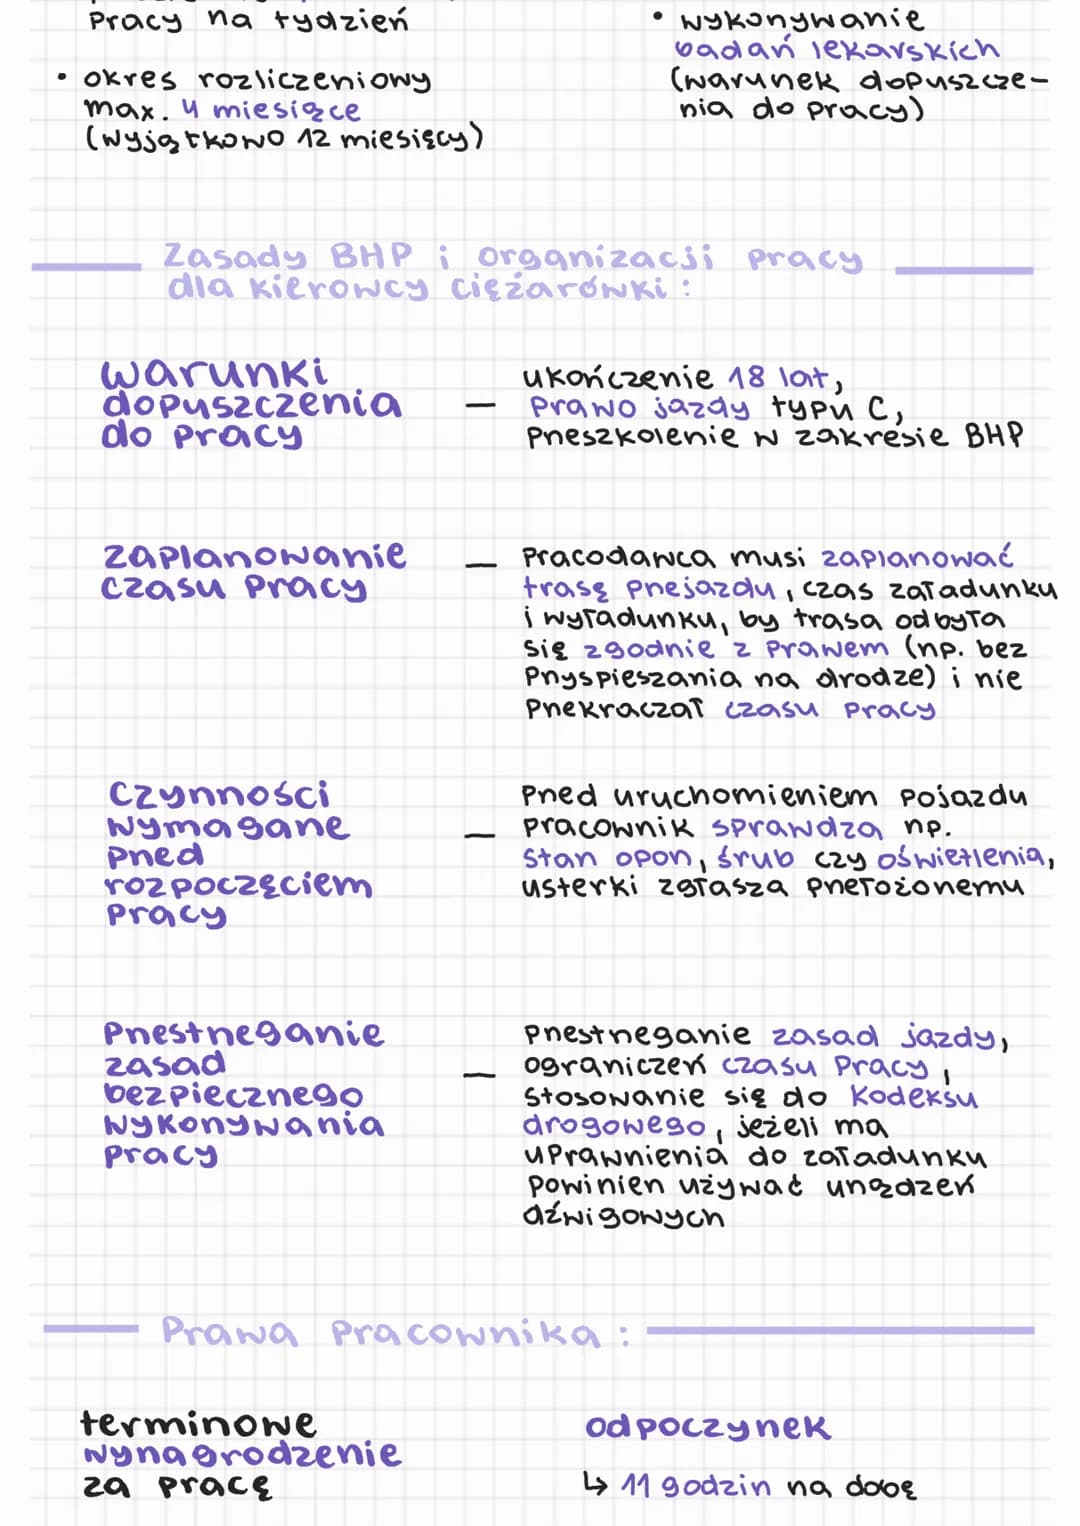 pracy na tydzień
• okres rozliczeniowy
max. 4 miesiące
(wyjątkowo 12 miesięcy)
• wykonywanie
badań lekarskich
(warunek dopuszcze-
nia do pracy)
Zasady BHP i organizacji pracy
dla kierowcy ciężarówki:
warunki
dopuszczenia
do pracy
— ukończenie 18 lat,
prawo jazdy typu C,
przeszkolenie w zakresie BHP
zaplanowanie
czasu pracy
— Pracodawca musi zaplanować
trasę przejazdu, czas załadunku
i wyładunku, by trasa odbyła
się zgodnie z prawem (np. bez
przyspieszania na drodze) i nie
przekraczał czasu pracy
Czynności
wymagane
przed
rozpoczęciem
pracy
— przed uruchomieniem pojazdu
pracownik sprawdza np.
stan opon, śrub czy oświetlenia,
usterki zgłasza przełożonemu
przestrzeganie
zasad
bezpiecznego
wykonywania
pracy
— przestrzeganie zasad jazdy,
ograniczeń czasu pracy,
stosowanie się do kodeksu
drogowego, jeżeli ma
uprawnienia do załadunku
powinien używać urządzeń
dźwigowych
Prawa pracownika:
terminowe
wynagrodzenie
za pracę
odpoczynek
↳ 11 godzin na dobę